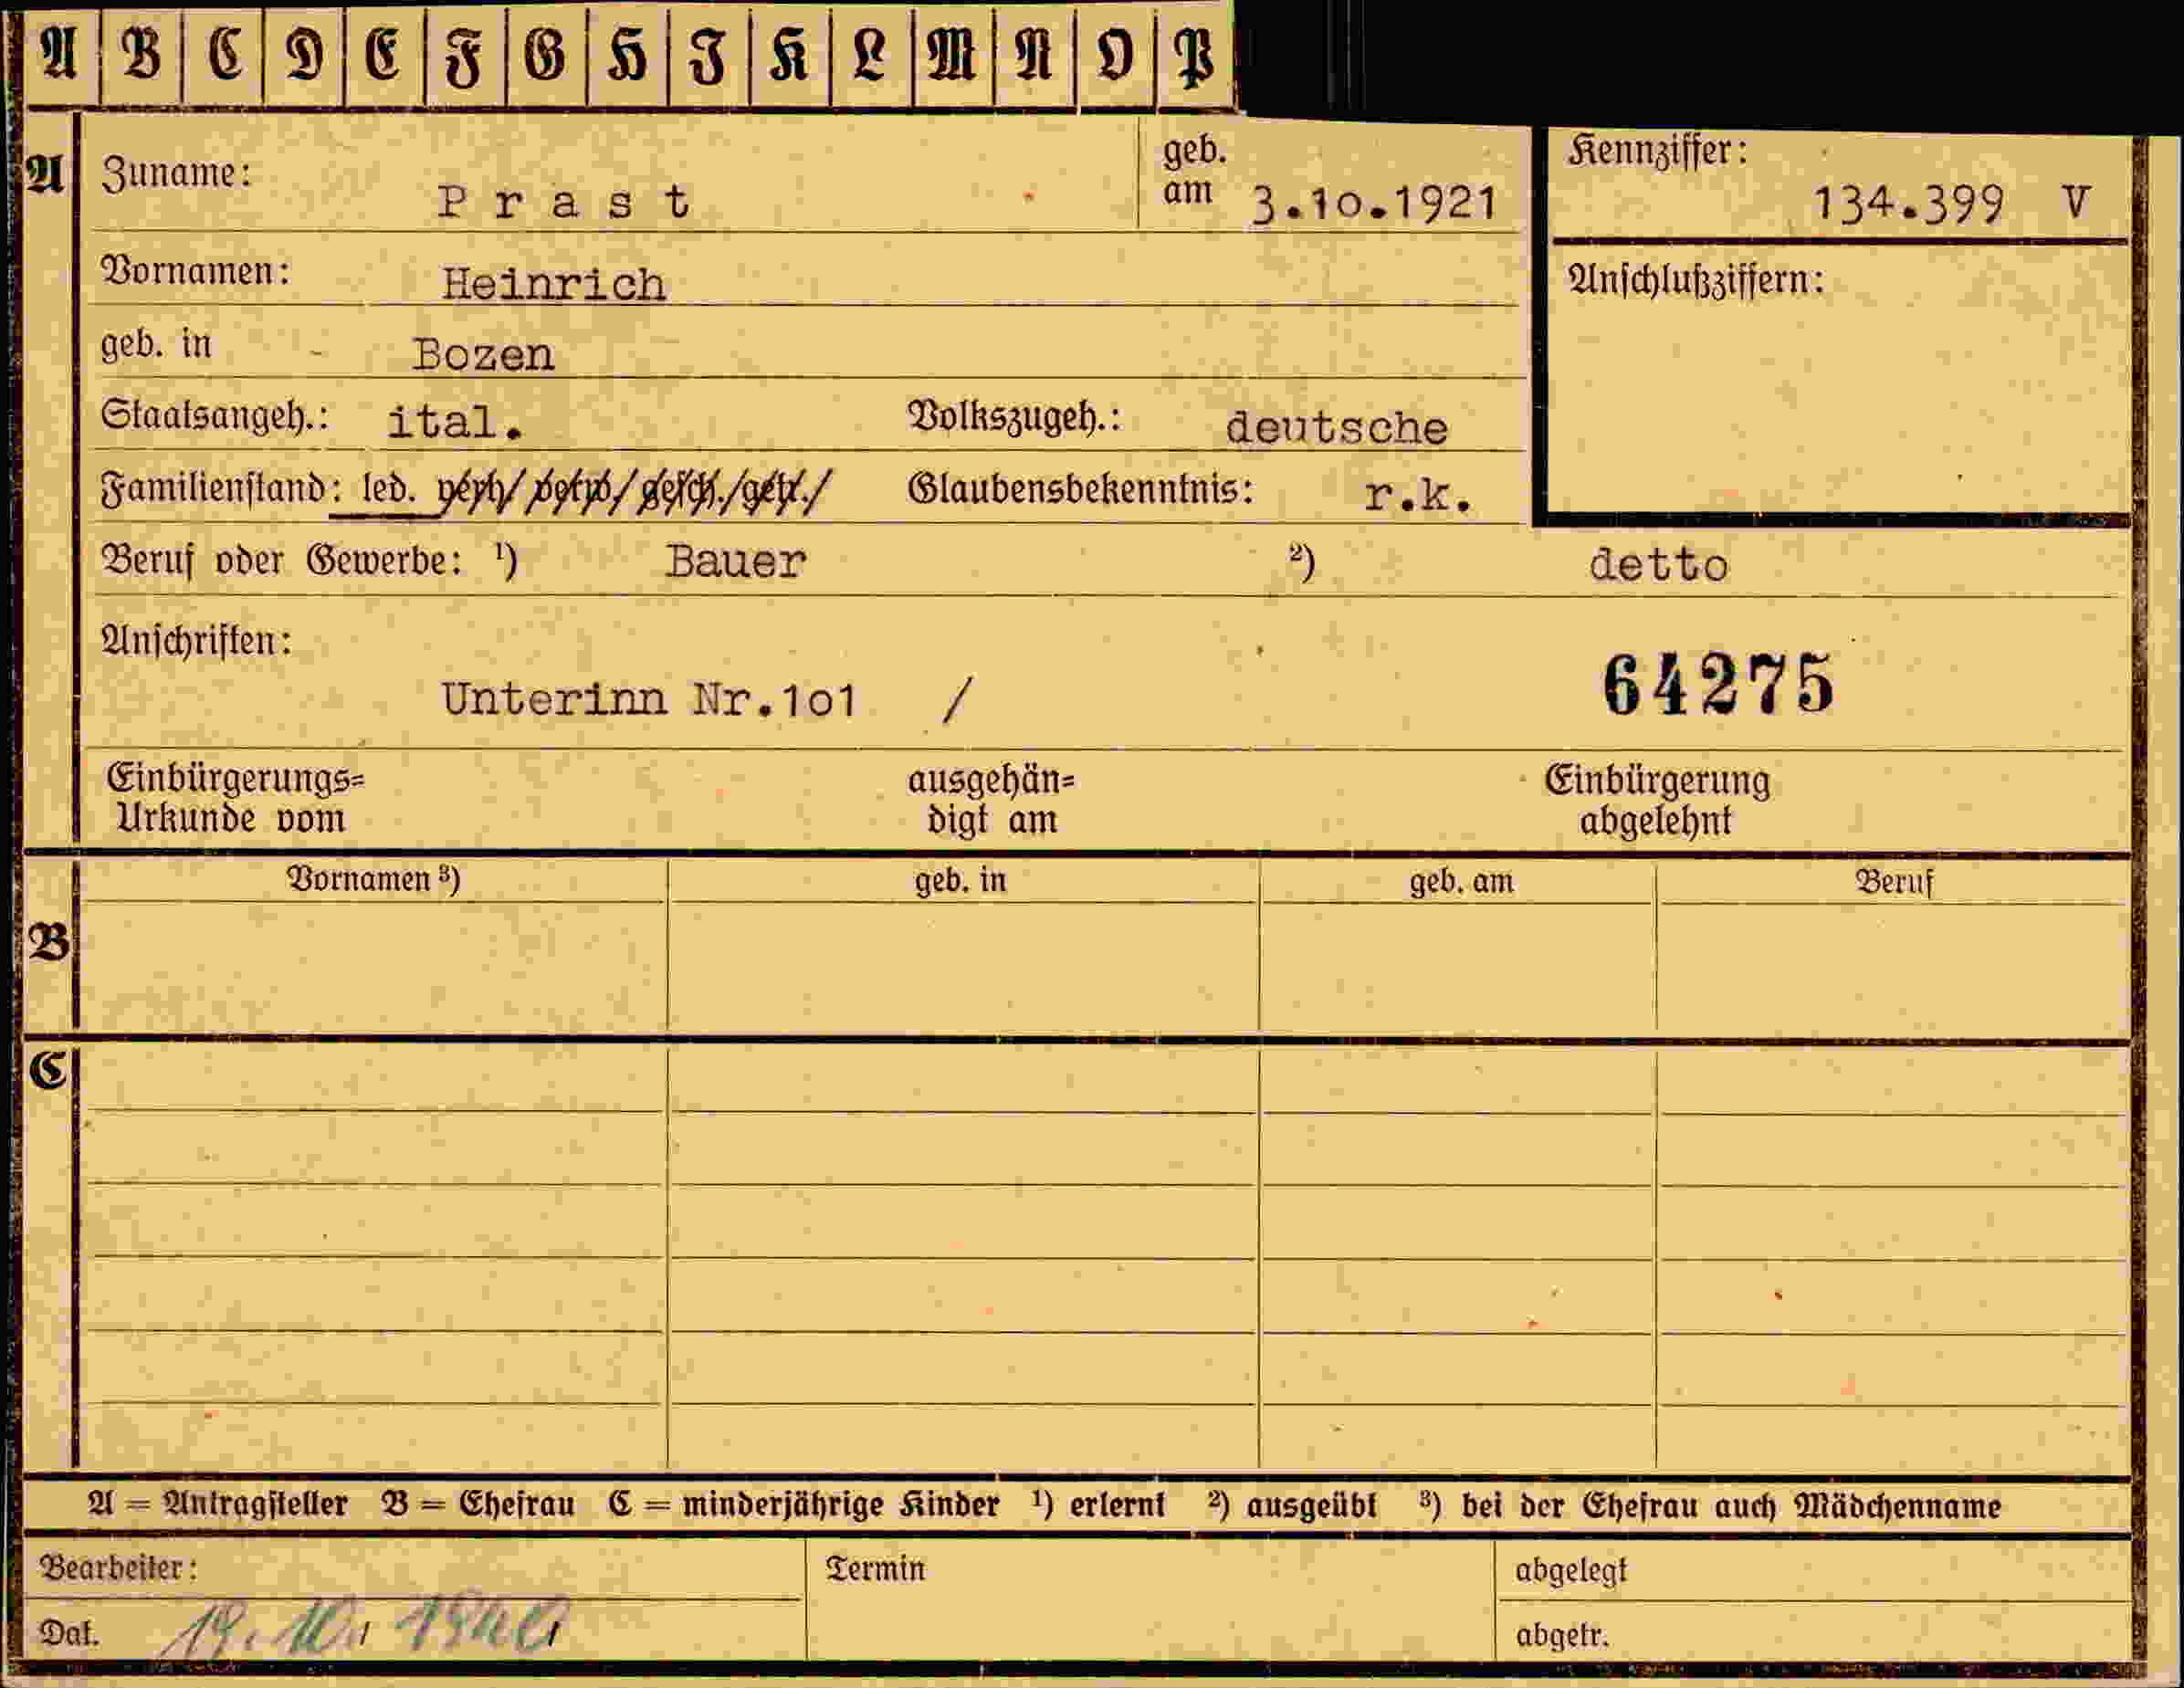 A B C D E F G H I K L M N O P
A Zuname: Prast geb. am 3.10.1921 Kennziffer: 134.399 V
Vornamen: Heinrich Anschlußziffern:
geb. in - Bozen
Staatsangeh.: ital. Volkszugeh.: deutsche
Familienstand: led. verh/ verw./ gesch./getr./ Glaubensbekenntnis: r.k.
Beruf oder Gewerbe: ¹) Bauer ²) detto
Anschriften:
Unterinn Nr.1o1 / 64275
Einbürgerungs= ausgehän= Einbürgerung
Urkunde vom digt am abgelehnt
Vornamen ³) geb. in geb. am Beruf
B
C
A = Antragsteller B = Ehefrau C = minderjährige Kinder ¹) erlernt ²) ausgeübt ³) bei der Ehefrau auch Mädchenname
Bearbeiter: Termin abgelegt
Dat. 19. 10. 1940 abgetr.